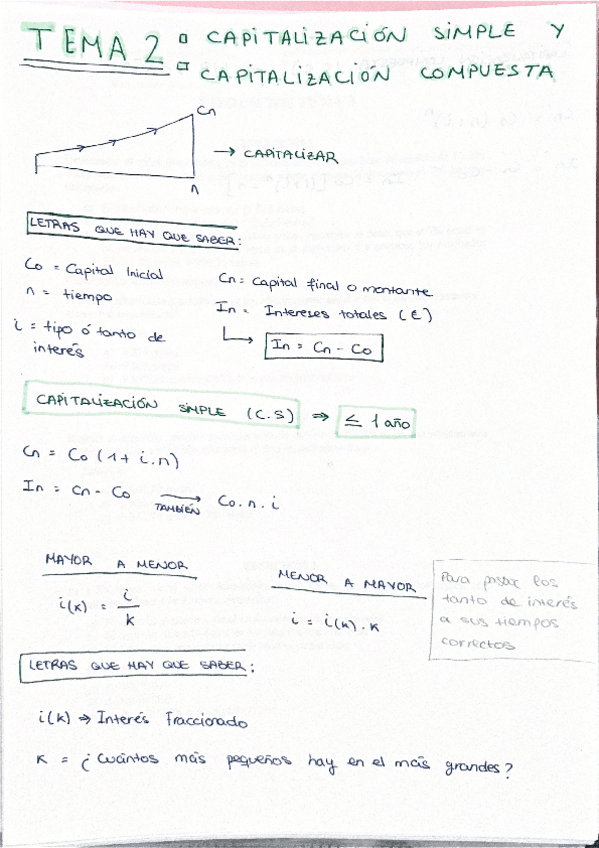 TEMA 2 ▫ CAPITALIZACIÓN SIMPLE Y
▫ CAPITALIZACIÓN COMPUESTA
Cn
→ CAPITALIZAR
n
LETRAS QUE HAY QUE SABER:
Co = Capital Inicial
Cn = Capital final o montante
n = tiempo
In = Intereses totales (€)
i = tipo ó tanto de
interés
In = Cn - Co
CAPITALIZACIÓN SIMPLE (C.S) ⇒ ≤ 1 año
Cn = Co (1 + i.n)
In = Cn - Co → TAMBIÉN Co.n.i
MAYOR A MENOR
MENOR A MAYOR
i(k) = i / k
i = i(k).k
Para pasar los
tanto de interés
a sus tiempos
correctos
LETRAS QUE HAY QUE SABER:
i(k) ⇒ Interés Fraccionado
K = ¿Cuántos más pequeños hay en el más grandes?